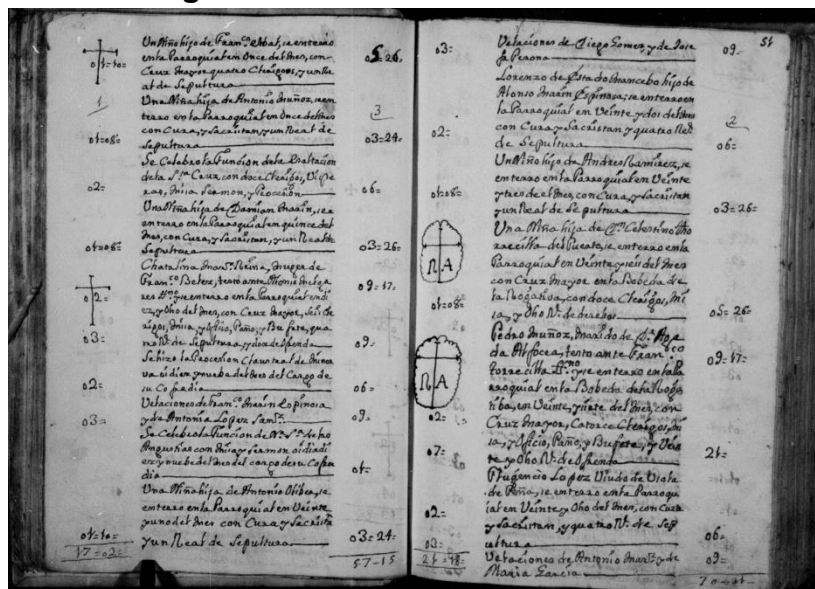 Un Niño hijo de Fran.co Vbal, se enterró
en la Parroquial en Once del Mes, con
Cruz Mayor quatro Clerigos, y un Re
al de Sepultura
01=10=
05=26=
1
Una Niña hija de Antonio Muñoz, se en
terro en la Parroquial en Once del Mes
con Cura, y Sacristan, y un Real de
Sepultura
01=08=
3
03=24=
Se Celebro la Funcion de la Exaltacion
de la S.ta Cruz, con doce Clerigos, Vispe
ras, Misa Sermon, y Procesion
02=
06=
Una Niña hija de Damian Marin, se e
nterro en la Parroquial en quince del
Mes, con Cura, y Sacristan, y un Real de
Sepultura
01=08=
03=26=
Chatalina Mar.z Reina, Muger de
Fran.co
testo ante
se enterro en la Parroquial en di
ez, y Ocho del Mes, con Cruz Mayor, seis Cle
rigos, Misa, y Oficio, Paño, y Bufete, qua
tro R.s de Sepultura, y doce de Ofrenda
02=
09=17=
03=
09=
Se hizo la Procesion Claustral de Miner
va oi dia diez, y nuebe del Mes del Cargo de
su Cofradia
02=
06=
Velaciones de Fran.co Marin Espinosa
y de Antonia Lopez
03=
09=
Se Celebro la Funcion de N.ra S.ra de las
Angustias con Misa, y Sermon oi dia di
ez, y nuebe del Mes del cargo de su Cofra
dia
01=
Una Niña hija de Antonio Oliber, se
enterro en la Parroquial en Veinte
y uno del Mes con Cura, y Sacristan
y un Real de Sepultura
01=10=
03=24=
17=02=
57-15
51
Velaciones de Diego Gomez, y de Jose
fa Perona
03=
09=
Lorenzo de Estado Mancebo hijo de
Alonso Marin Espinosa; se enterro en
la Parroquial en Veinte, y dos del Mes
con Cura, y Sacristan y quatro Re.s
de Sepultura
02=
2
06=
Un Niño hijo de Andres Ramirez, se
enterro en la Parroquial en Veinte
y tres de el Mes, con Cura, y Sacristan
y un Real de Sepultura
01=08=
03=26=
Una Niña hija de D.n Celestino Tho
rrecilla del Puerto, se enterro en la
Parroquial en Veinte, y seis del Mes
con Cruz Mayor, en la Bobeda de
la Rogativa, con doce Clerigos, Mi
sa, y Ocho R.s de derechos
N A
01=08=
05=26=
Pedro Muñoz, Marido de
testo ante Fran.co
Torrecilla Es.no y se enterro en la Pa
rroquial en la Bobeda de la Roga
tiba, en Veinte, y siete del Mes, con
Cruz Mayor, Catorce Clerigos, Mi
sa, y Oficio, Paño, y Bufete, y Vein
te y Ocho R.s de Ofrenda
N A
02=
09=17=
07=
21=
Frugencio Lopez Viudo de
de Peña, se enterro en la Parroqu
ial en Veinte, y Ocho del Mes, con Cura
y Sacristan, y quatro R.s de Sep
ultura
02=
06=
Velaciones de Antonio Mar.z y de
Maria Garcia
03=
09=
21=18=